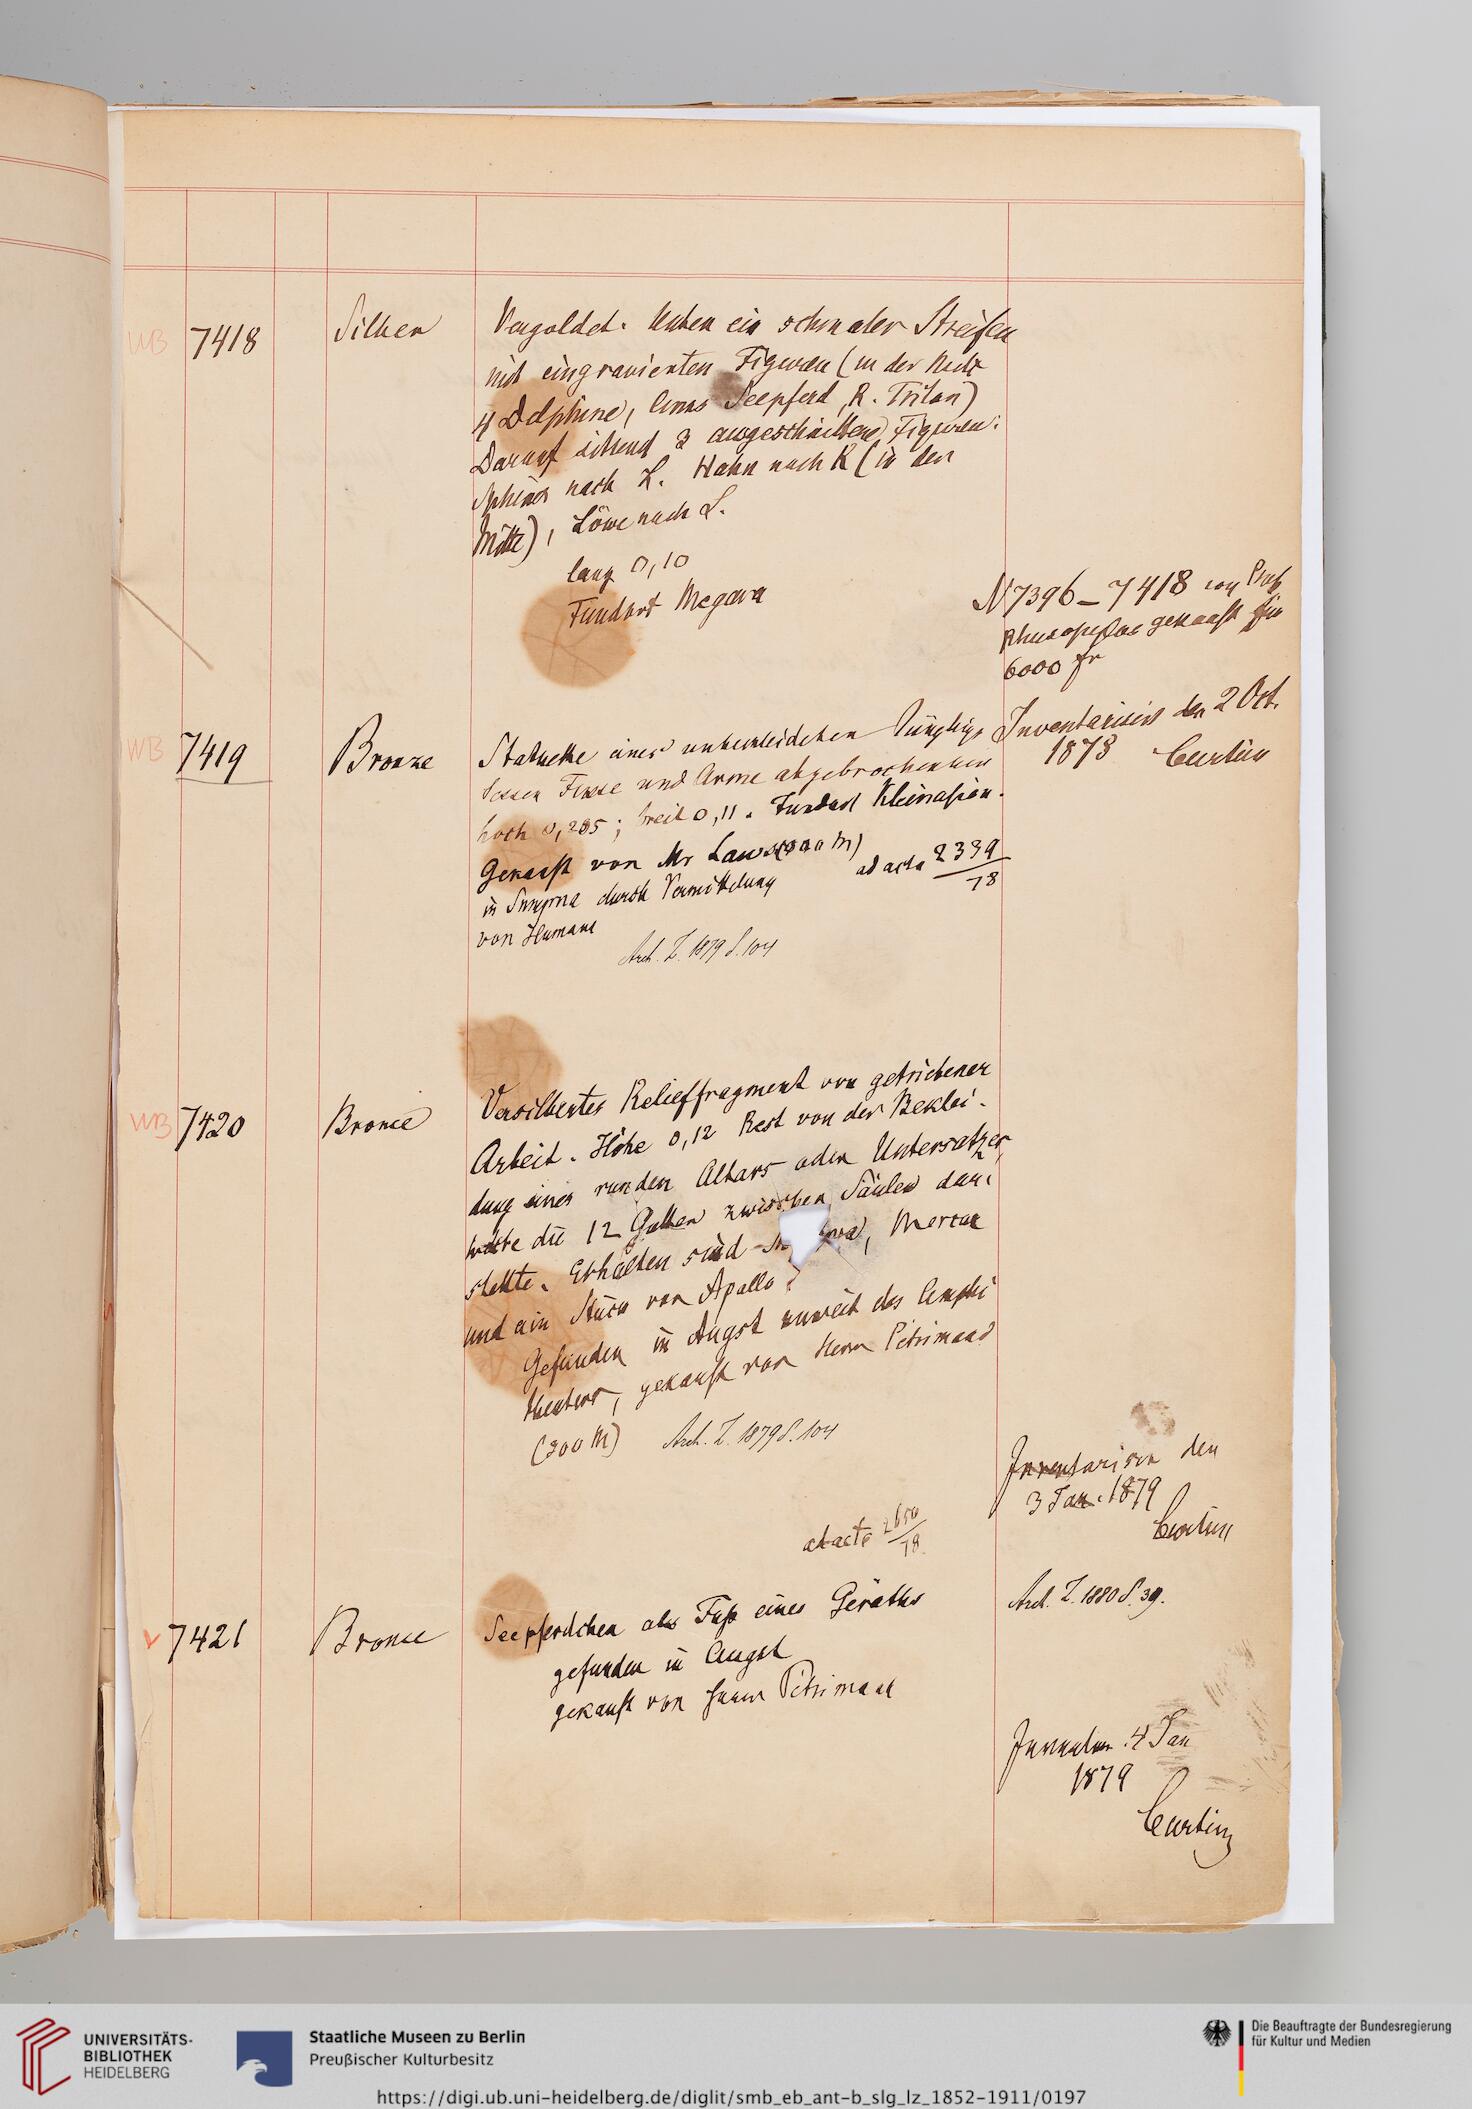 WB 7418 Silber Vergoldet. Unten ein schmaler Streifen
mit eingravierten Figuren (in der Mitte
4 Delphine, links Seepferd, R. Triton)
Darauf sitzend 3 ausgeschnittene Figuren:
Sphinx nach L. Hahn nach R (in der
Mitte), Löwe nach L.
lang 0,10
Fundort Megara
N 7396–7418 von
Rhusopulos gekauft für
6000 fr
WB 7419 Bronze Statuette eines unbekleideten Jünglings
dessen Füsse und Arme abgebrochen sind
hoch 0,285; breit 0,11. Fundort Kleinasien.
Gekauft von Mr Lawson ( M)
in Smyrna durch Vermittelung
von Humann
ad acta 2339/78
Arch. Z. 1879 S. 104
Inventarisirt den 2 Oct.
1878 Curtius
WB 7420 Bronce Versilbertes Relieffragment von getriebener
Arbeit. Höhe 0,12 Rest von der Beklei-
dung eines runden Altars oder Untersatzes,
welche die 12 Götter zwischen Säulen dar-
stellte. Erhalten sind Mercur
und ein Stück von Apollo
Gefunden in Augst unweit des Amphi
theaters, gekauft von Herrn Petrimand
(300 M) Arch. Z. 1879 S. 104
ad acta 2650/78
Inventarisirt den
3 Jan. 1879
Curtius
7421 Bronce Seepferdchen als Fuß eines Geräths
gefunden in Augst
gekauft von Herrn Petrimand
Arch. Z. 1880 S. 39.
4 Jan
1879
Curtius
UNIVERSITÄTS-
BIBLIOTHEK
HEIDELBERG
Staatliche Museen zu Berlin
Preußischer Kulturbesitz
Die Beauftragte der Bundesregierung
für Kultur und Medien
https://digi.ub.uni-heidelberg.de/diglit/smb_eb_ant-b_slg_lz_1852-1911/0197